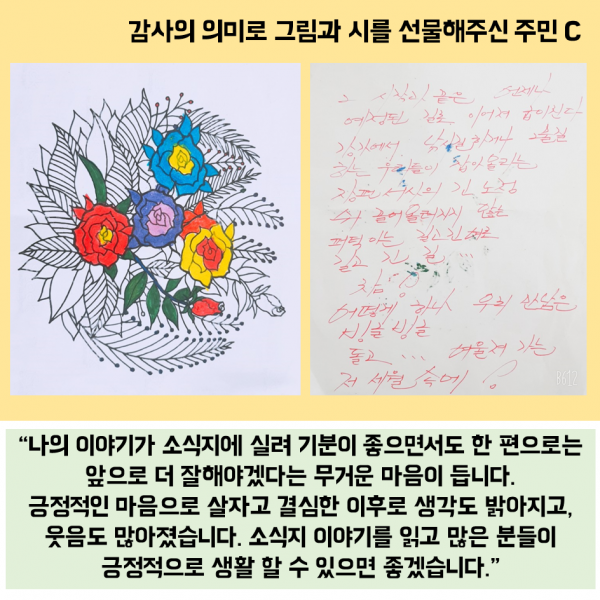 감사의 의미로 그림과 시를 선물해주신 주민 C
그 시작과 끝은 언제나
예정된 걸로 이어져
강가에서
우리들이
장편 서사의 긴 노정
길고 긴
길고 긴 길
참 
어떻게 하나 우리 만남은
빙글 빙글
돌고 ... 여울져 가는
저 세월 속에
“나의 이야기가 소식지에 실려 기분이 좋으면서도 한 편으로는
앞으로 더 잘해야겠다는 무거운 마음이 듭니다.
긍정적인 마음으로 살자고 결심한 이후로 생각도 밝아지고,
웃음도 많아졌습니다. 소식지 이야기를 읽고 많은 분들이
긍정적으로 생활 할 수 있으면 좋겠습니다.”